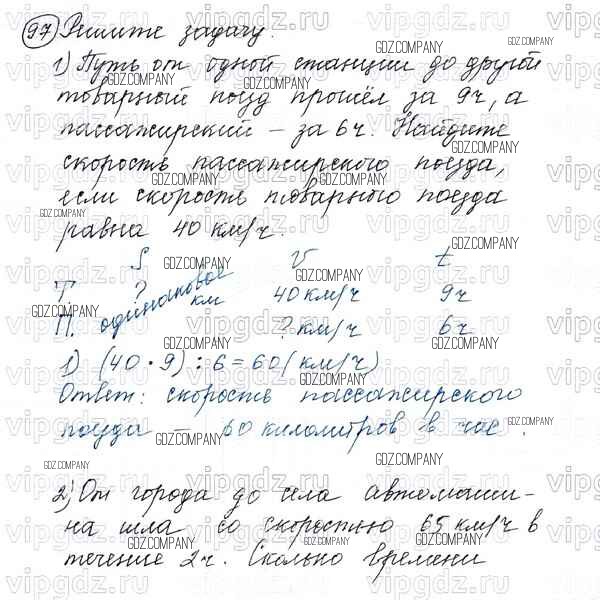 97 Решите задачу.
1) Путь от одной станции до другой
товарный поезд прошёл за 9ч, а
пассажирский – за 6ч. Найдите
скорость пассажирского поезда,
если скорость товарного поезда
равна 40 км/ч.
S V t
Т. ? км 40 км/ч 9ч
П. одинаковое ? км/ч 6ч
1) (40 · 9) : 6 = 60 (км/ч)
Ответ: скорость пассажирского
поезда – 60 километров в час.
2) От города до села автомаши-
на шла со скоростью 65 км/ч в
течение 2ч. Сколько времени